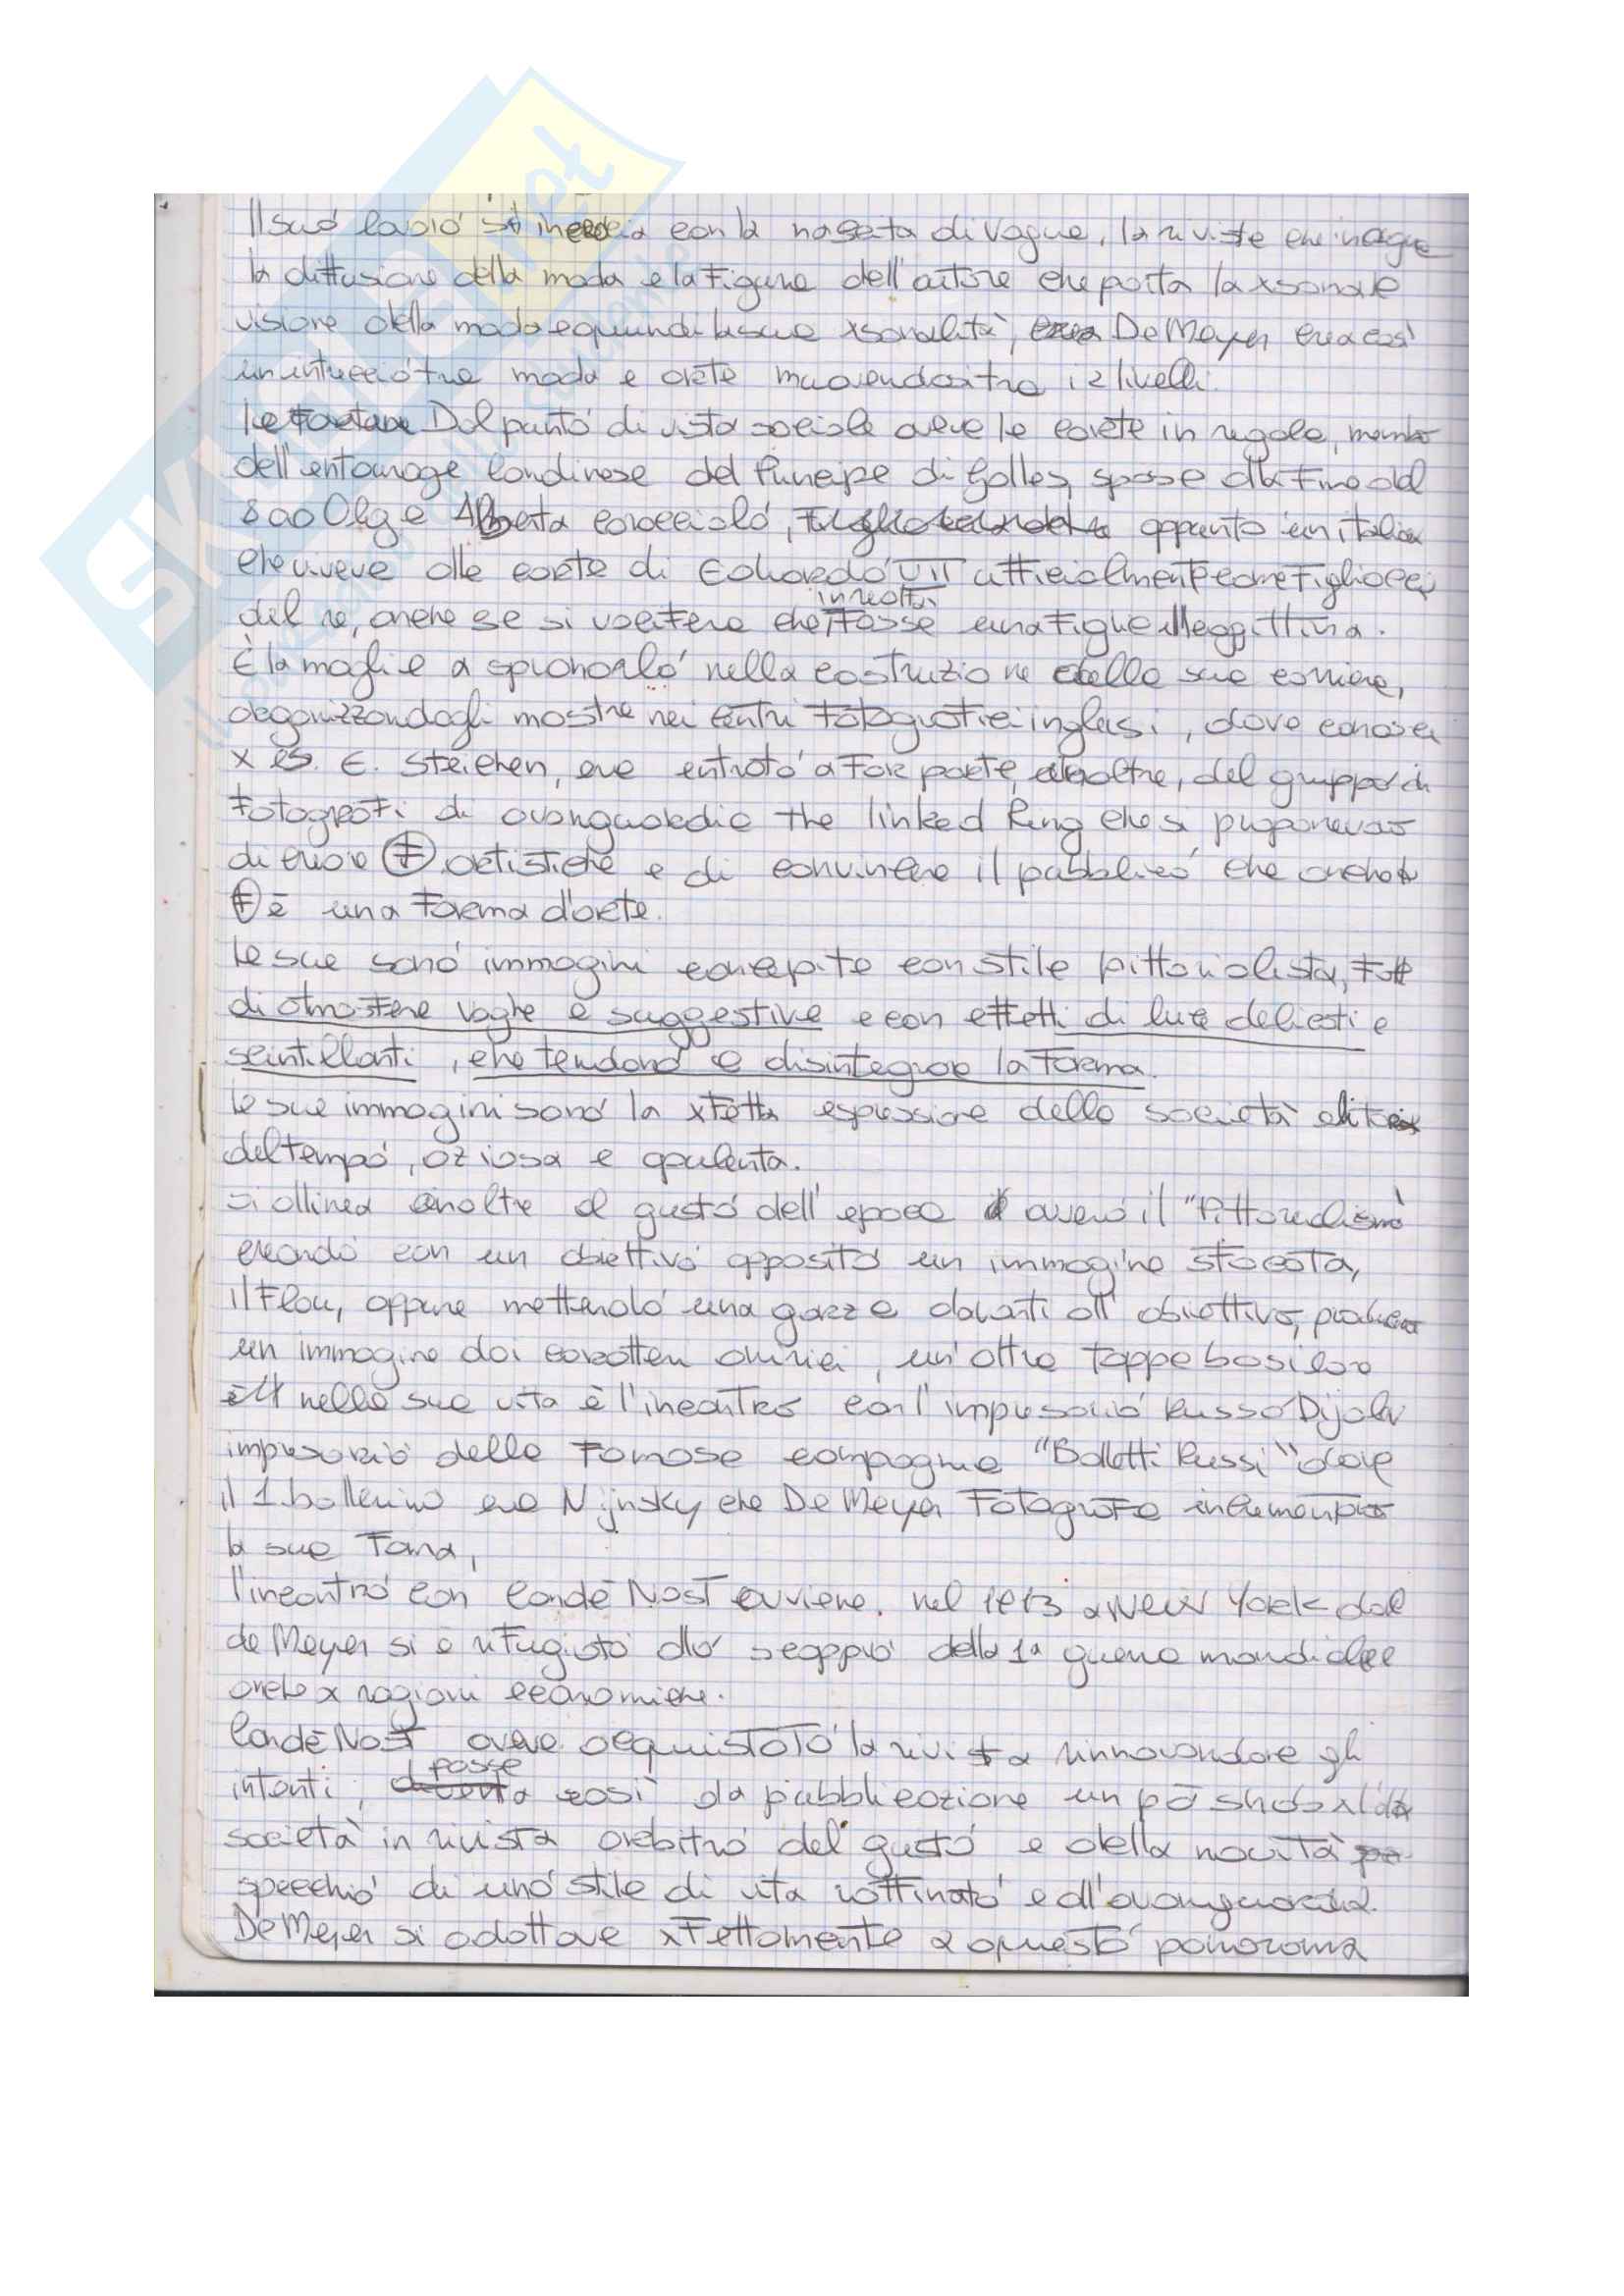 SKUOLA.net
Il suo lavoro si incrocia con la nascita di Vogue, la riviste che
la diffusione della moda e la figura dell'autore che porta la xsonale
visione della moda e quindi la sua xsonalità, De Meyer crea così
un intreccio tra moda e arte muovendosi tra i 2 livelli.
Dal punto di vista sociale aveva le carte in regola, membro
dell'entourage londinese del Principe di Galles, sposa alla fine del
800 Olga Alberta Caracciolo, appunto un italiana
che viveva alla corte di Edoardo VII ufficialmente come figlioccia
del re, anche se si vocifera che in realtà fosse una figlia illeggittima.
È la moglie a spronarlo nella costruzione della sua carriera,
organizzandogli mostre nei centri fotografici inglesi, dove conosce
x es. E. Steichen, era entrato a far parte, inoltre, del gruppo di
fotografi di avanguardia the linked Ring che si proponevano
di creare F artistiche e di convincere il pubblico che anche la
F è una forma d'arte.
Le sue sono immagini concepite con stile pittorialista, fatte
di atmosfere vaghe e suggestive e con effetti di luce delicati e
scintillanti, che tendono a disintegrare la forma.
Le sue immagini sono la xfetta espressione della società elitaria
del tempo, oziosa e opulenta.
Si allinea inoltre al gusto dell'epoca ovvero il "Pittorialismo"
creando con un obiettivo apposito un immagine sfocata,
il Flou, oppure mettendo una garza davanti all'obiettivo, producendo
un immagine dai caratteri onirici, un'altra tappa basilare
nella sua vita è l'incontro con l'impresario Russo
impresario della famosa compagnia "Balletti Russi" dove
il 1. ballerino era Nijnsky che De Meyer fotografa incrementando
la sua fama,
l'incontro con Condè Nast avviene nel 1913 a New York dove
de Meyer si è rifugiato allo scoppio della 1ª guerra mondiale
anche x ragioni economiche.
Condè Nast aveva acquistato la rivista rinnovandone gli
intenti, passa così da pubblicazione un pò snob x l'alta
società in rivista arbitro del gusto e della novità
specchio di uno stile di vita raffinato e all'avanguardia.
De Meyer si adattava xfettamente a questo panorama